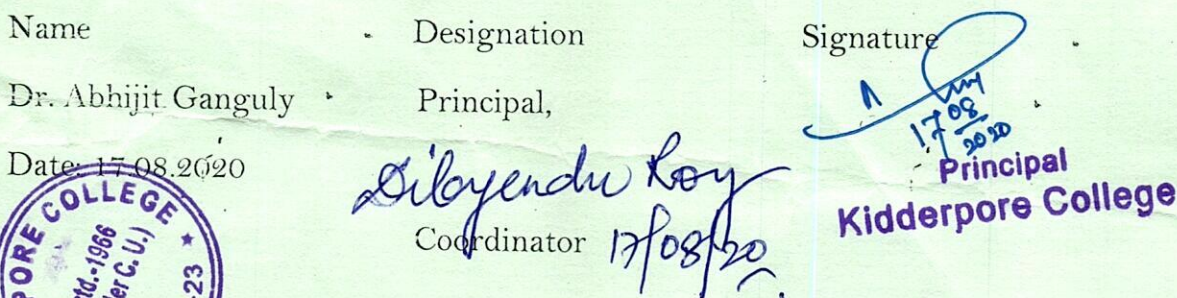 Name Designation Signature
Dr. Abhijit Ganguly Principal,
17 08/2020
Date: 17.08.2020
Principal
Kidderpore College
Dibyendu Roy
Coordinator 17/08/20
PORE COLLEGE
td.-1966
er C. U.)
23